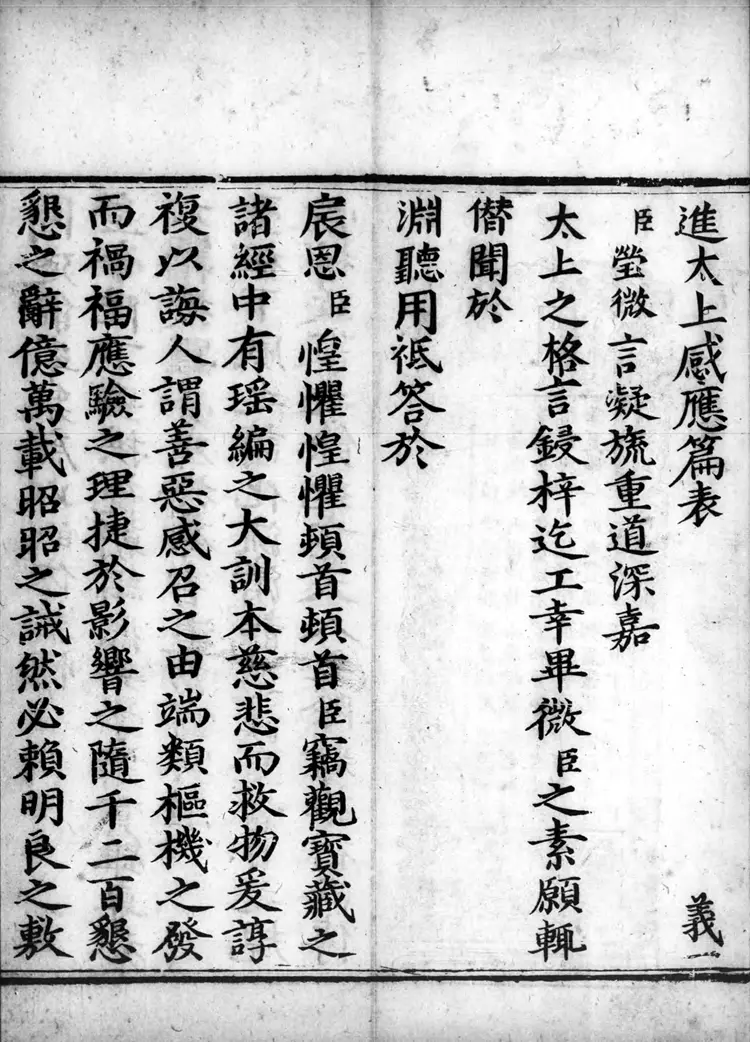 進太上感應篇表
義一
臣瑩微言凝旒重道深嘉
太上之格言鋟梓迄工幸畢微臣之素願輒
僣聞於
淵聽用祗答於
宸恩臣惶懼惶懼頓首頓首臣竊觀寶藏之
諸經中有瑶編之大訓本慈悲而救物爰諄
複以誨人謂善惡感召之由端類樞機之發
而禍福應驗之理捷於影響之隨千二百懇
懇之辭億萬載昭昭之誡然必賴明良之敷